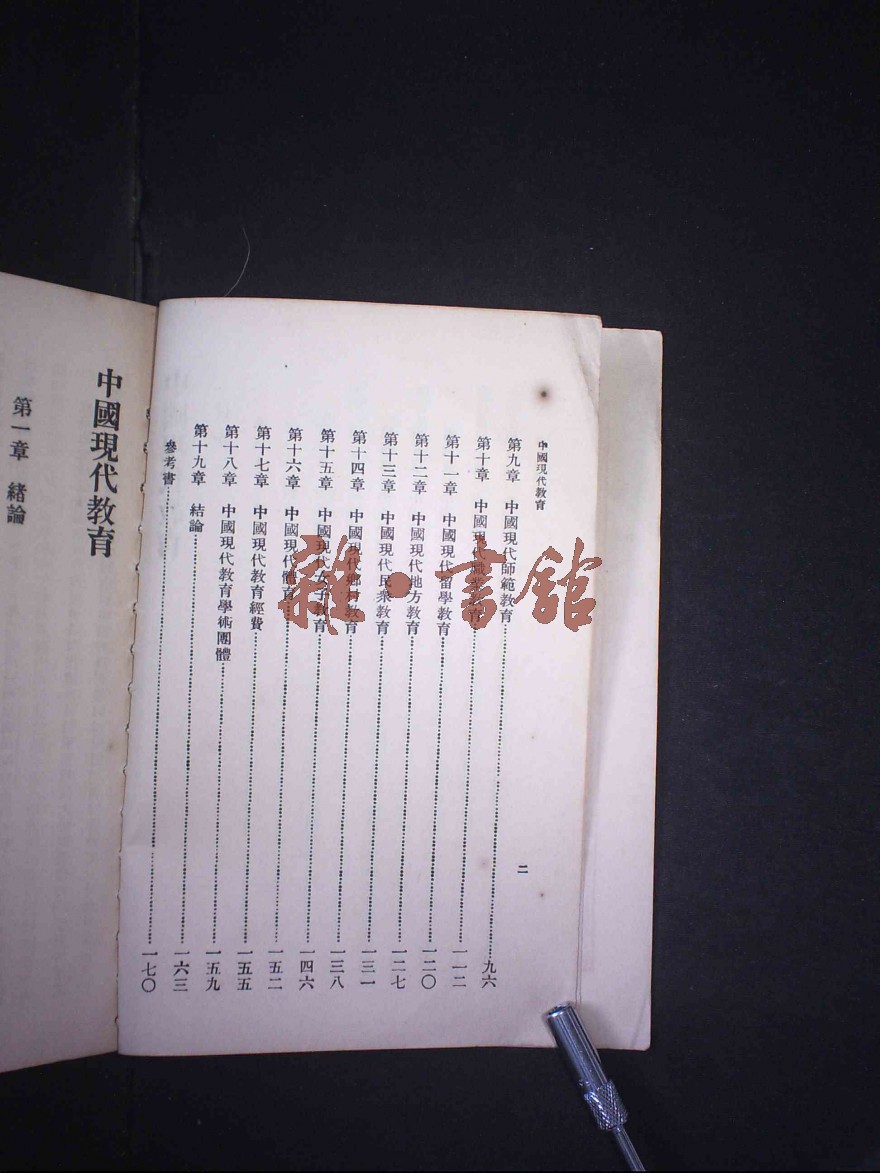 中國現代教育
第九章 中國現代師範教育……九六
第十章 中國現代職業教育……一一二
第十一章 中國現代留學教育……一二〇
第十二章 中國現代地方教育……一二七
第十三章 中國現代民衆教育……一三一
第十四章 中國現代鄉村教育……一三八
第十五章 中國現代女子教育……一四六
第十六章 中國現代體育……一五二
第十七章 中國現代教育經費……一五五
第十八章 中國現代教育學術團體……一五九
第十九章 結論……一六三
參考書……一七〇
二
中國現代教育
第一章 緒論
雜·書館